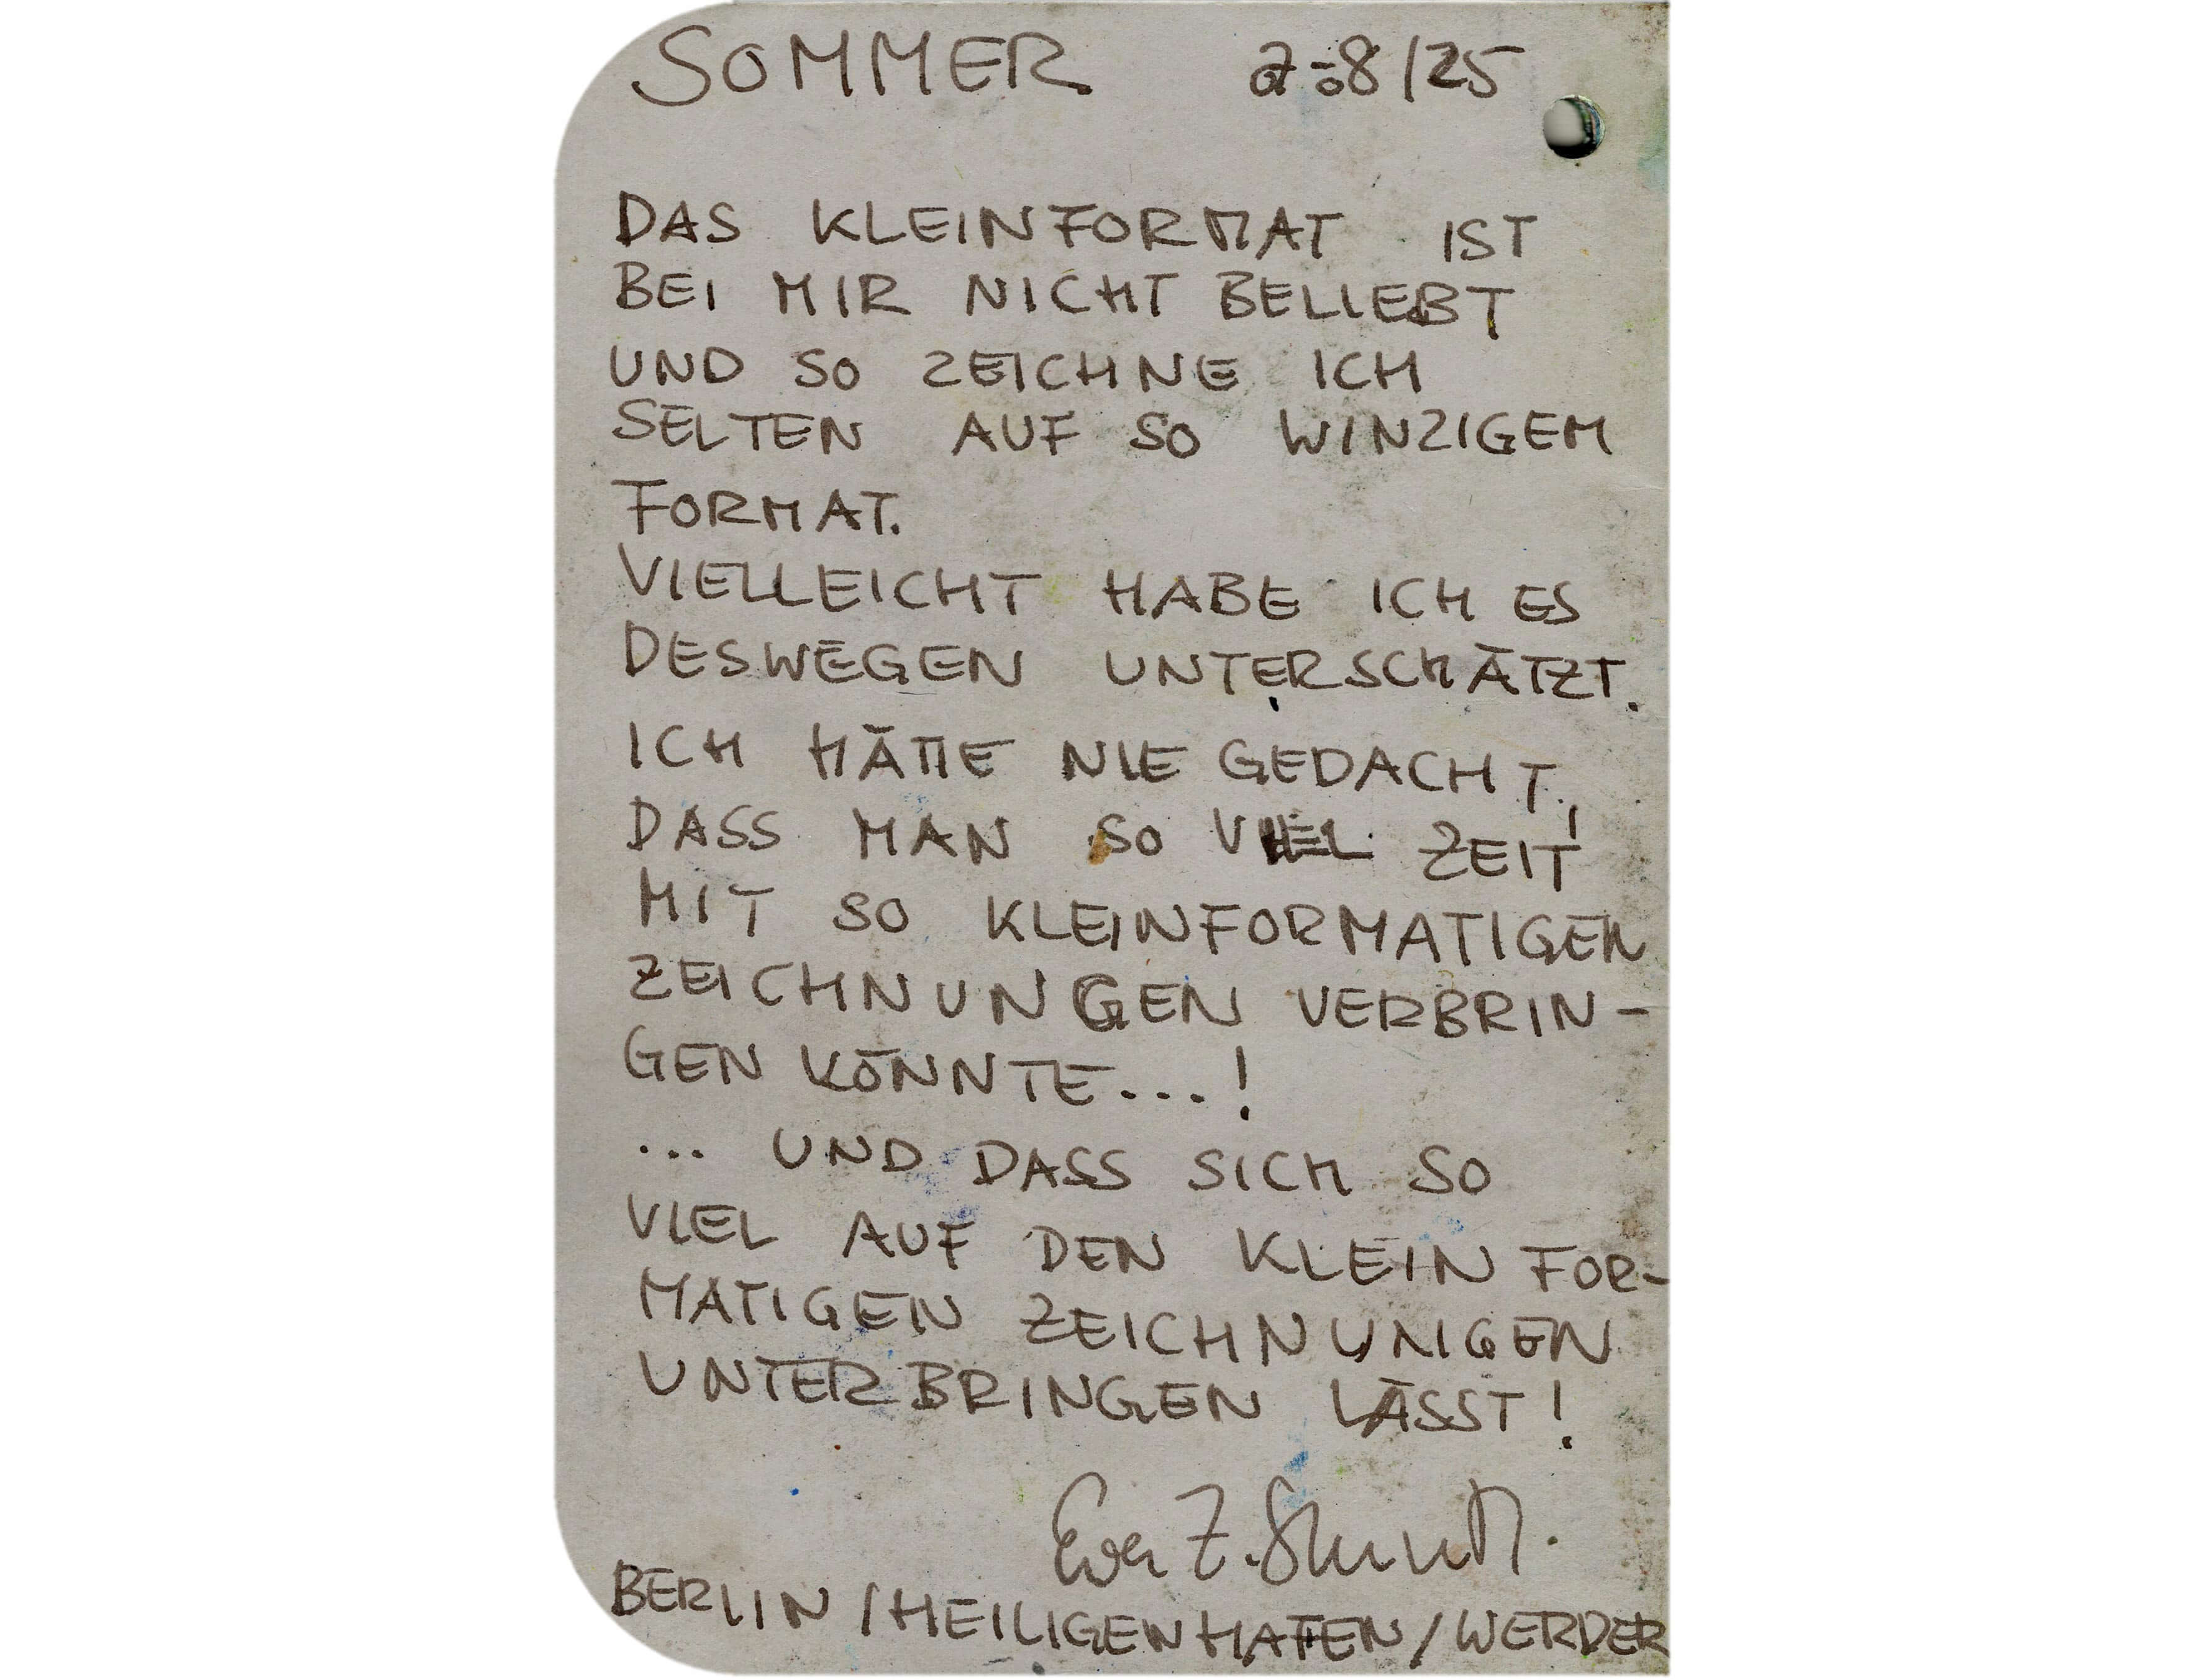 SOMMER 7-8/25
DAS KLEINFORMAT IST
BEI MIR NICHT BELIEBT
UND SO ZEICHNE ICH
SELTEN AUF SO WINZIGEM
FORMAT.
VIELLEICHT HABE ICH ES
DESWEGEN UNTERSCHÄTZT.
ICH HÄTTE NIE GEDACHT,
DASS MAN SO VIEL ZEIT
MIT SO KLEINFORMATIGEN
ZEICHNUNGEN VERBRIN-
GEN KÖNNTE...!
... UND DASS SICH SO
VIEL AUF DEN KLEINFOR-
MATIGEN ZEICHNUNGEN
UNTERBRINGEN LÄSST!
Ewa Z.
BERLIN/HEILIGENHAFEN/WERDER